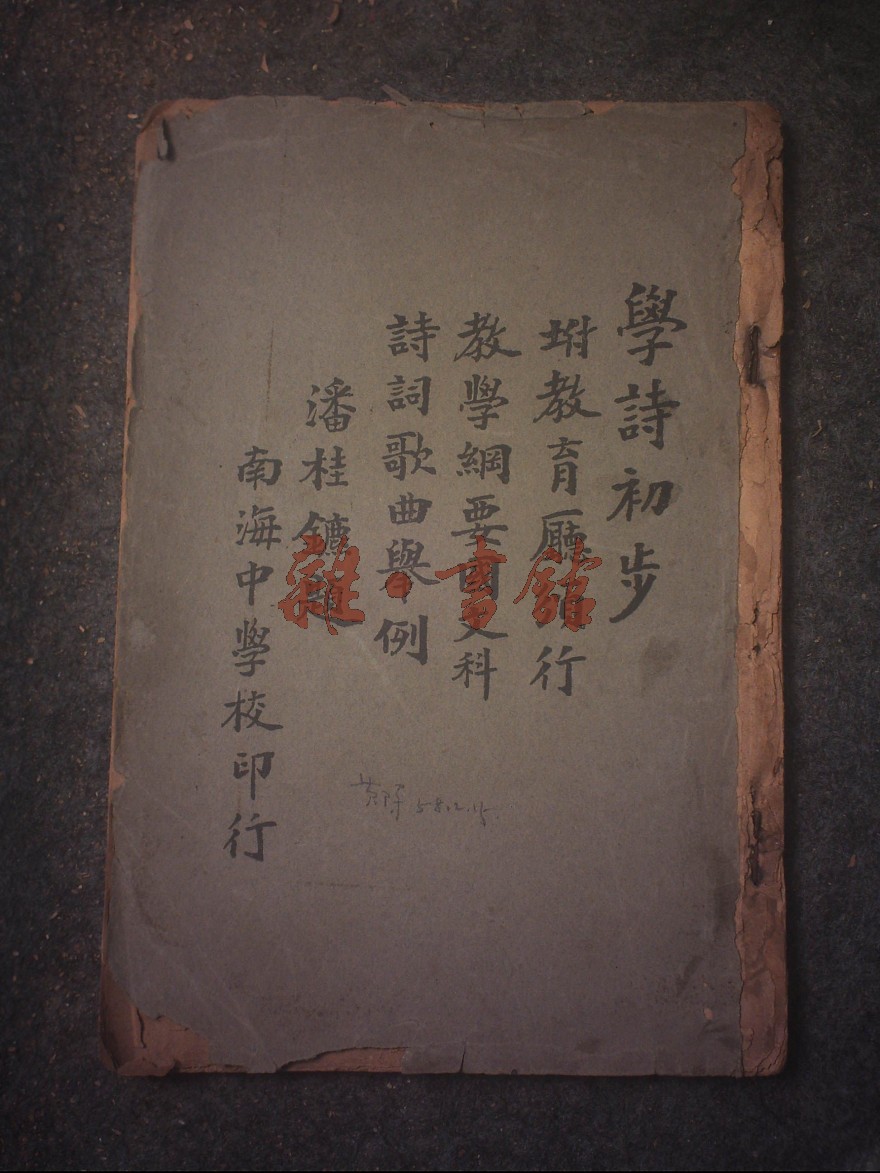 學詩初步
坿教育厛頒行
教學綱要國文科
詩詞歌曲舉例
潘桂題
南海中學校印行
58.12.15
雜·書館